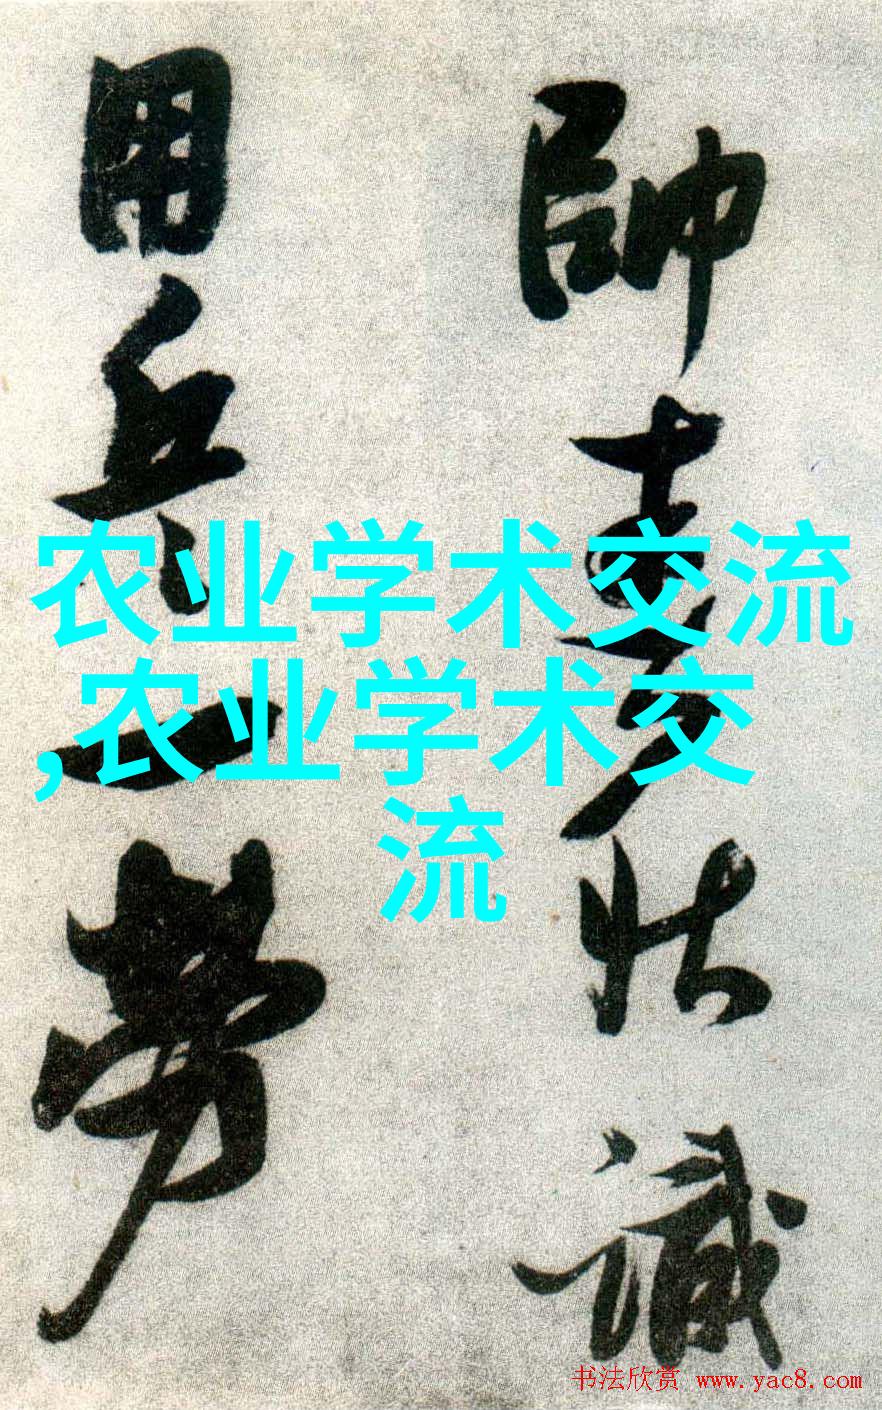 农业学术交流
,农业学术交流
帥壯識
用兵一勞
书法欣赏 www.yac8.com